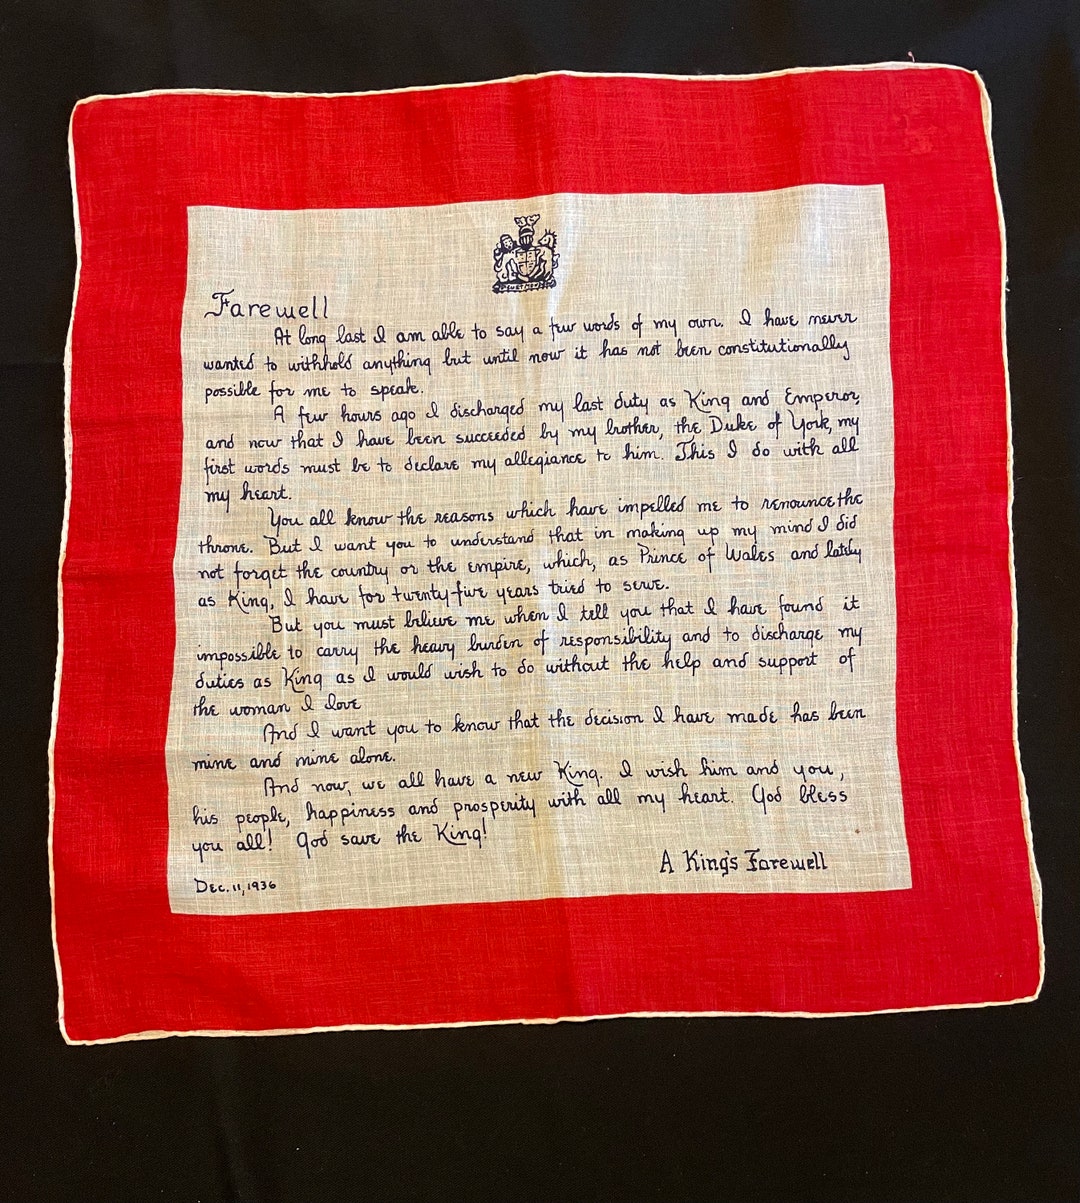 Farewell
At long last I am able to say a few words of my own. I have never
wanted to withhold anything but until now it has not been constitutionally
possible for me to speak.
A few hours ago I discharged my last duty as King and Emperor,
and now that I have been succeeded by my brother, the Duke of York, my
first words must be to declare my allegiance to him. This I do with all
my heart.
You all know the reasons which have impelled me to renounce the
throne. But I want you to understand that in making up my mind I did
not forget the country or the empire, which, as Prince of Wales and lately
as King, I have for twenty-five years tried to serve.
But you must believe me when I tell you that I have found it
impossible to carry the heavy burden of responsibility and to discharge my
duties as King as I would wish to do without the help and support of
the woman I love
And I want you to know that the decision I have made has been
mine and mine alone.
And now, we all have a new King. I wish him and you,
his people, happiness and prosperity with all my heart. God bless
you all! God save the King!
A King's Farewell
Dec. 11, 1936